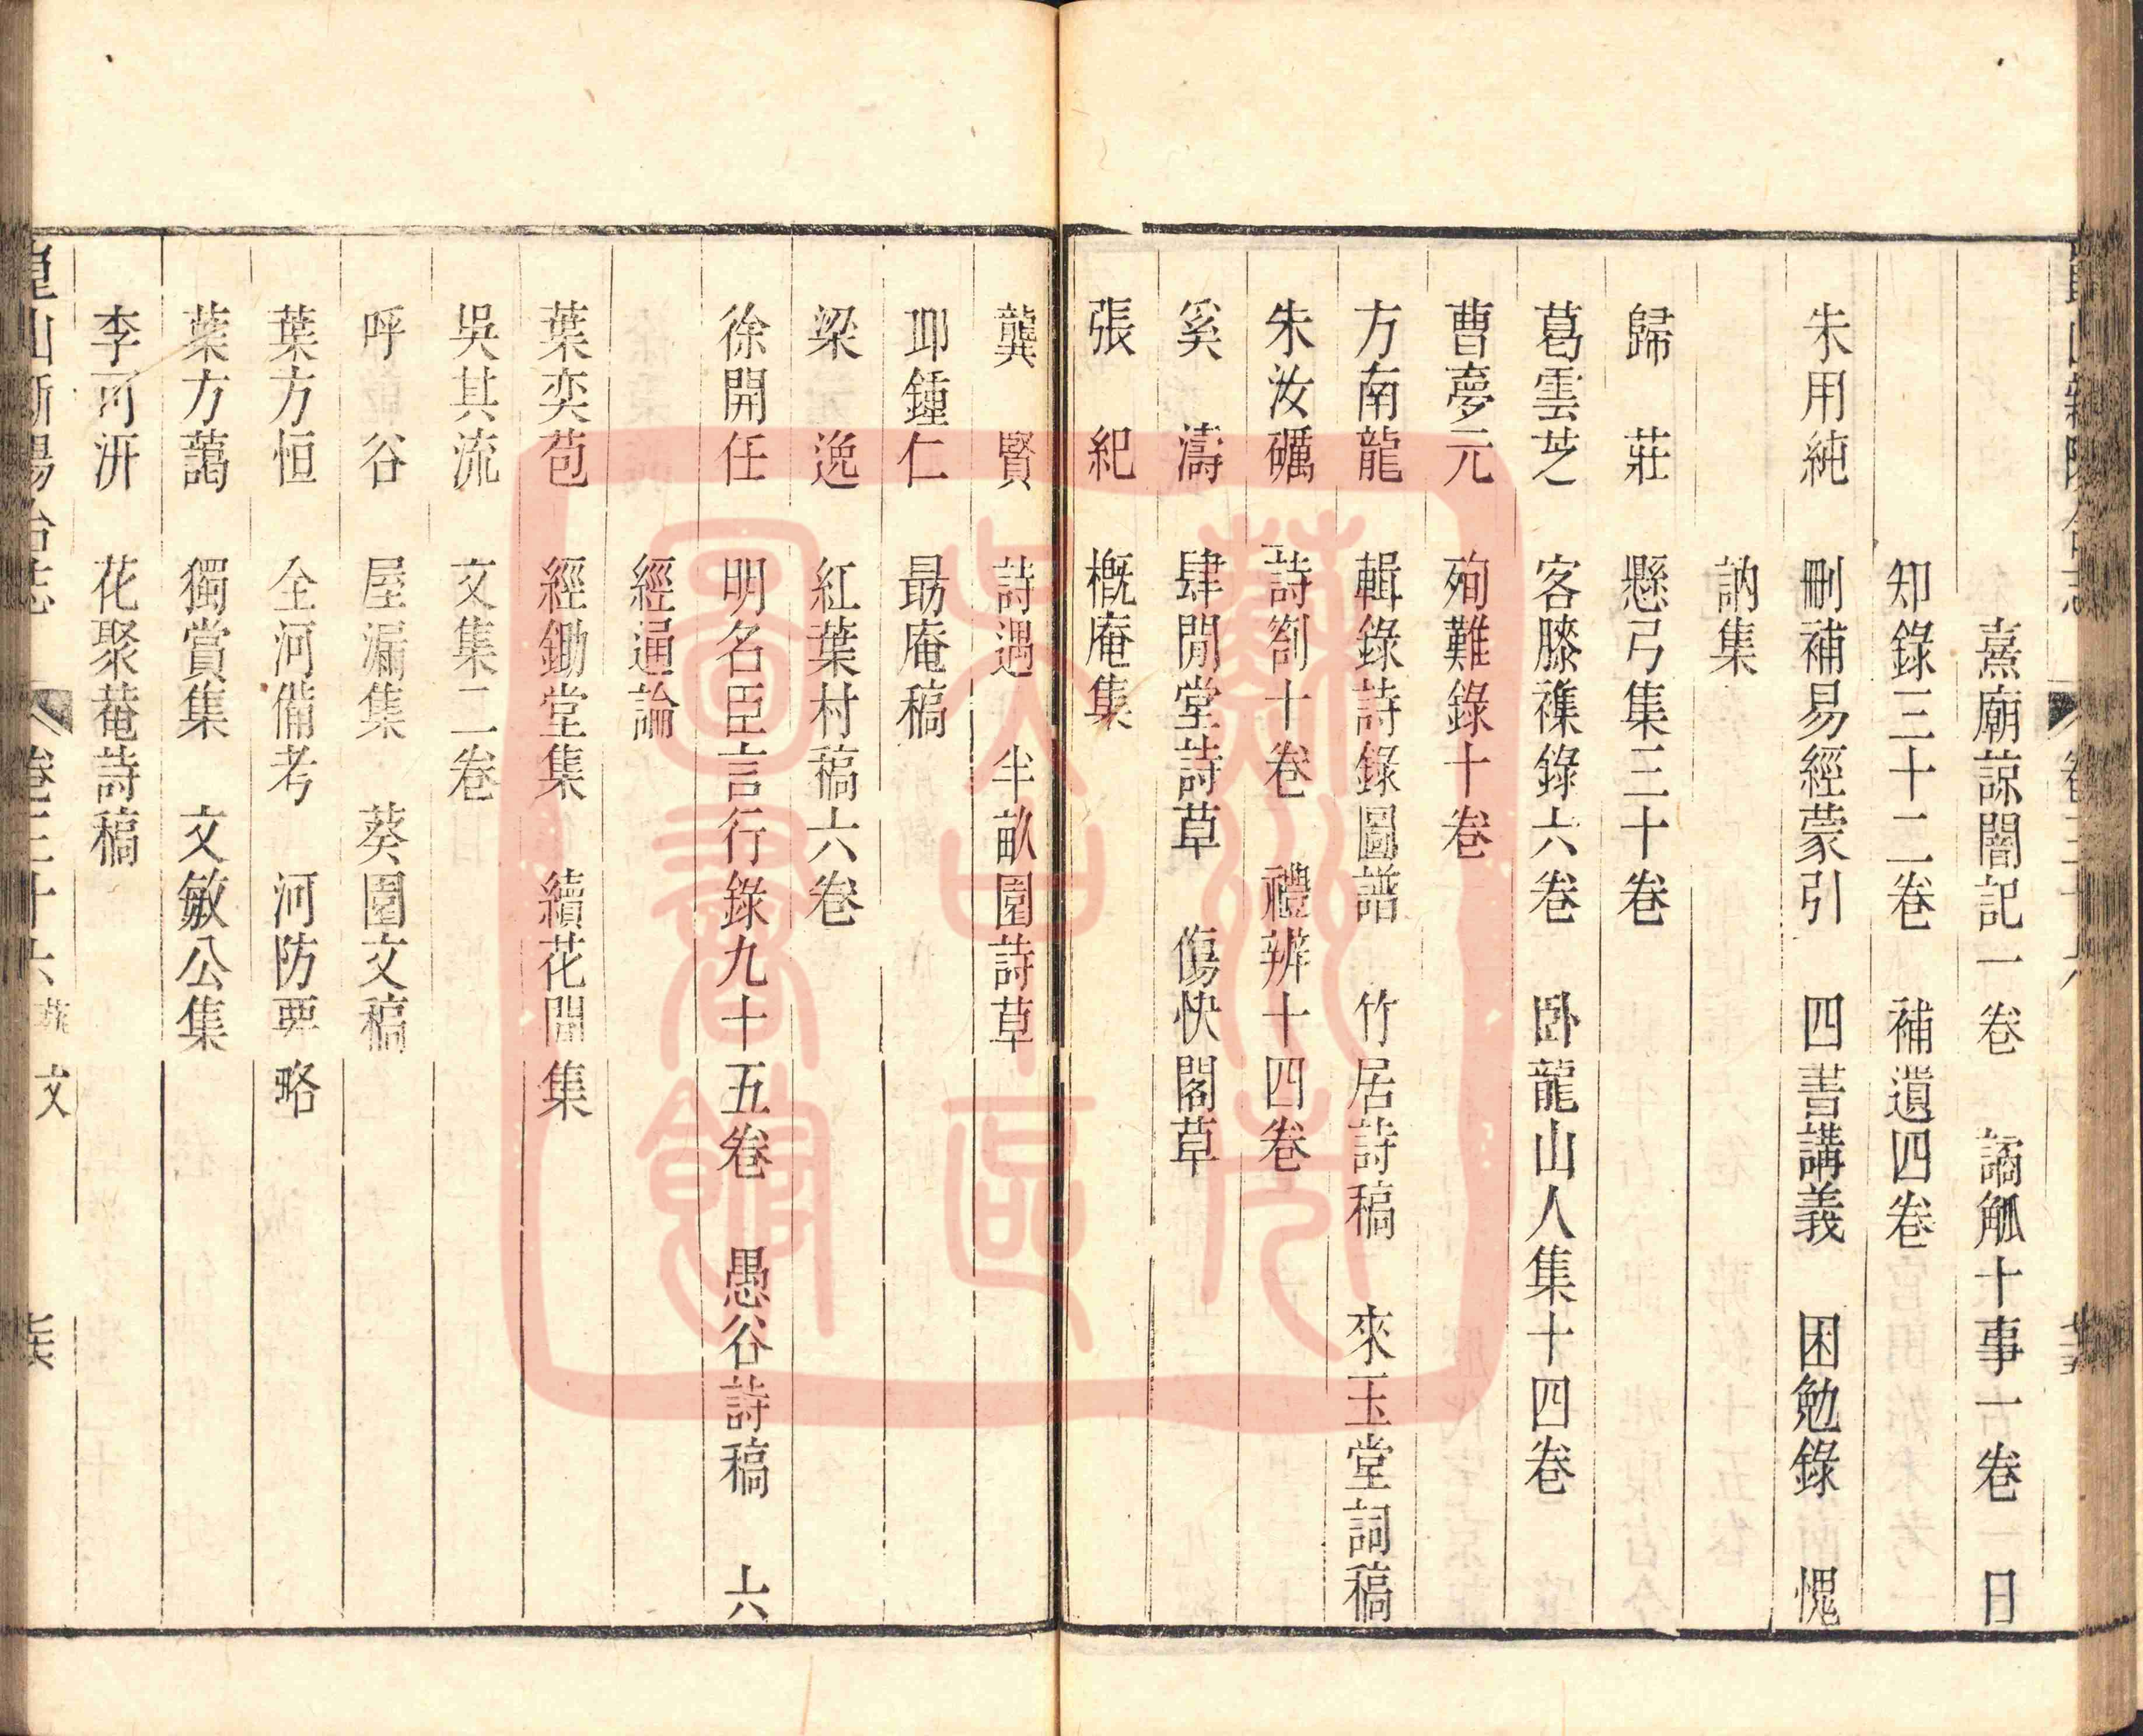 熹廟諒闇記一卷　譎觚十事一卷　日
知錄三十二卷　補遺四卷
朱用純　刪補易經蒙引　四書講義　困勉錄　愧
訥集
歸　莊　懸弓集三十卷
葛雲芝　客膝襍錄六卷　臥龍山人集十四卷
曹夢元　殉難錄十卷
方南龍　輯錄詩錄圖譜　竹居詩稿　來玉堂詞稿
朱汝礪　詩劄十卷　禮辨十四卷
奚　濤　肆閒堂詩草　傷快閣草
張　紀　概庵集
龔　賢　詩遇　半畝園詩草
邱鍾仁　最庵稿
梁　逸　紅葉村稿六卷
徐開任　明名臣言行錄九十五卷　愚谷詩稿　六
經通論
葉奕苞　經鋤堂集　續花間集
吳其流　文集二卷
呼　谷　屋漏集　葵園文稿
葉方恒　全河備考　河防要略
葉方藹　獨賞集　文敏公集
李可汧　花聚菴詩稿
卷三十六　藝文
蘇州大學中區圖書館